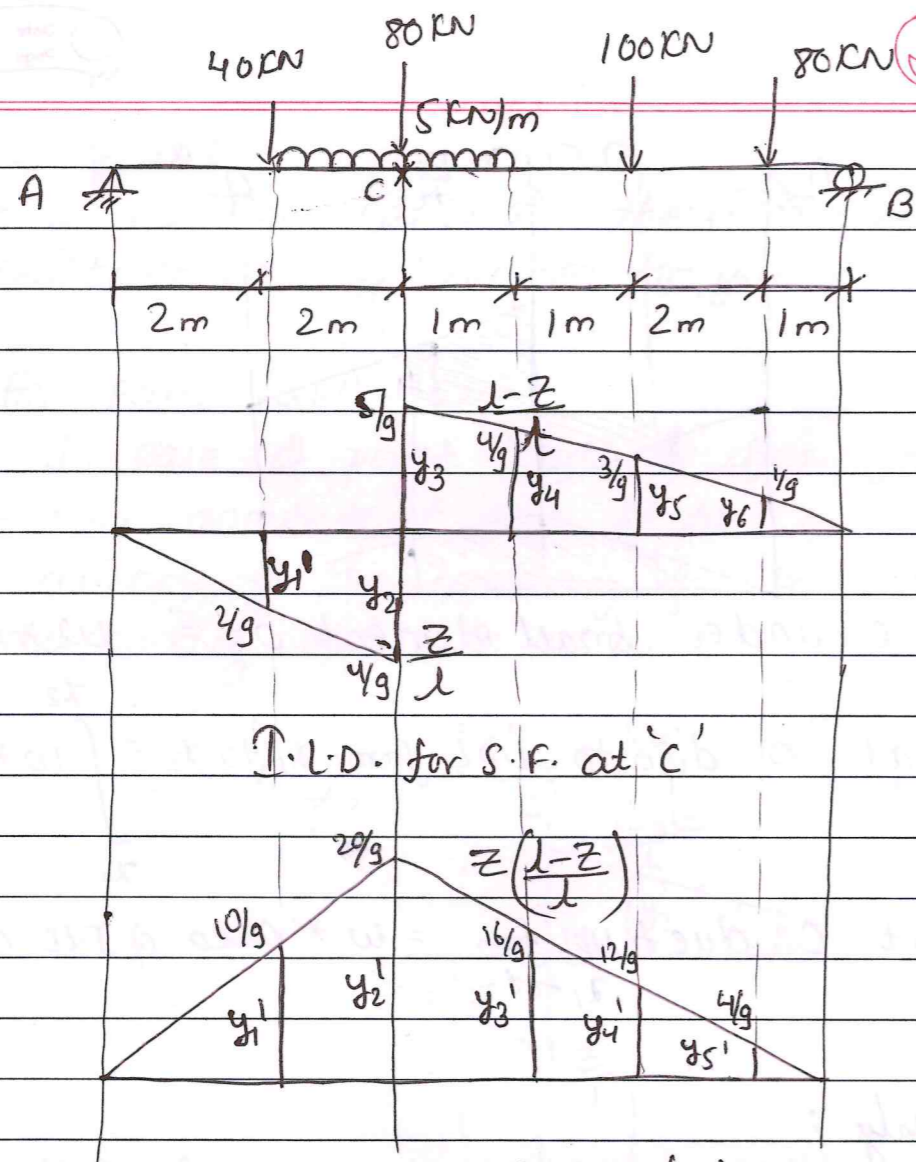 80KN
40KN 100KN 80KN
5KN/m
A C B
2m 2m 1m 1m 2m 1m
5/9 l-Z/l
4/9 3/9 1/9
y3 y4 y5 y6
y1' y2
2/9
4/9 Z/l
I.L.D. for S.F. at 'C'
20/9 Z(l-Z/l)
10/9 16/9 12/9
4/9
y1' y2' y3' y4' y5'